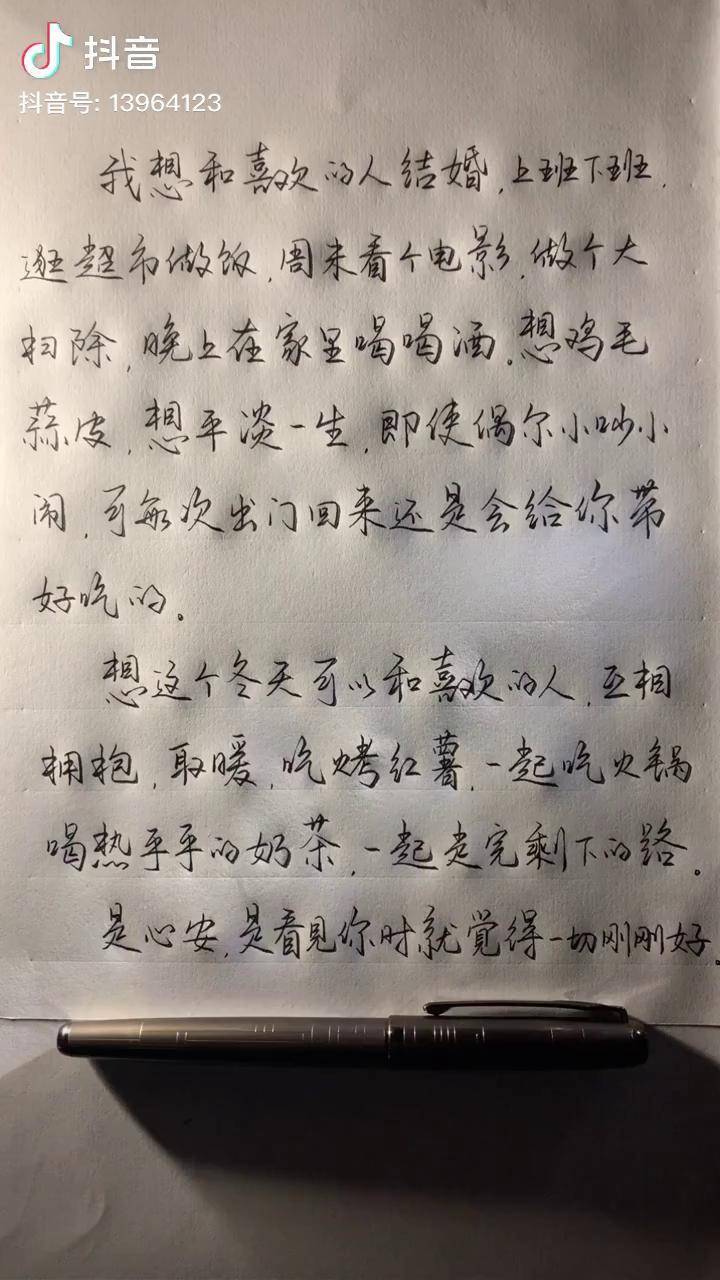 抖音
抖音号: 13964123
我想和喜欢的人结婚,上班下班,
逛超市做饭,周末看个电影,做个大
扫除,晚上在家里喝喝酒。想鸡毛
蒜皮,想平淡一生,即使偶尔小吵小
闹,可每次出门回来还是会给你带
好吃的。
想这个冬天可以和喜欢的人,互相
拥抱,取暖,吃烤红薯,一起吃火锅
喝热乎乎的奶茶,一起走完剩下的路。
是心安,是看見你时就覺得一切刚刚好。